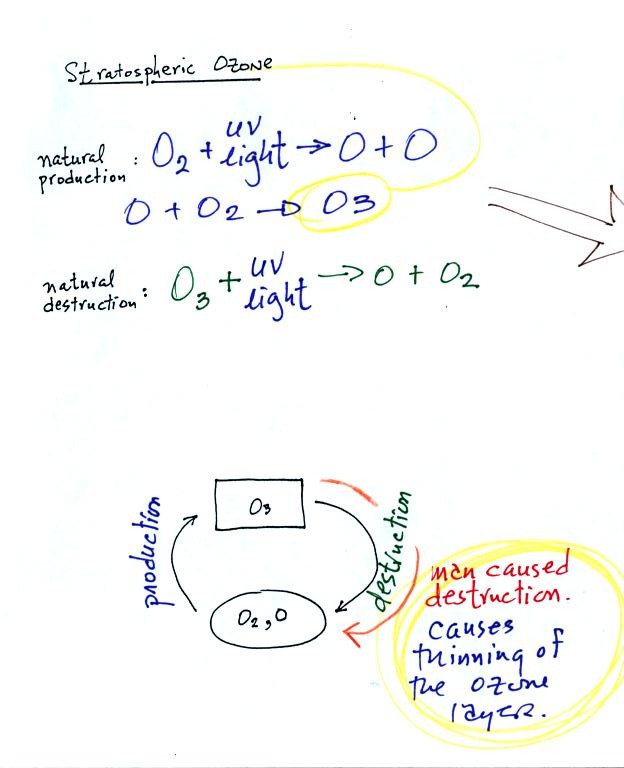 Stratospheric Ozone
natural production : O2 + uv light → O + O
O + O2 → O3
natural destruction : O3 + uv light → O + O2
O3
production
destruction
O2, O
man caused
destruction.
causes
thinning of
the ozone
layer.